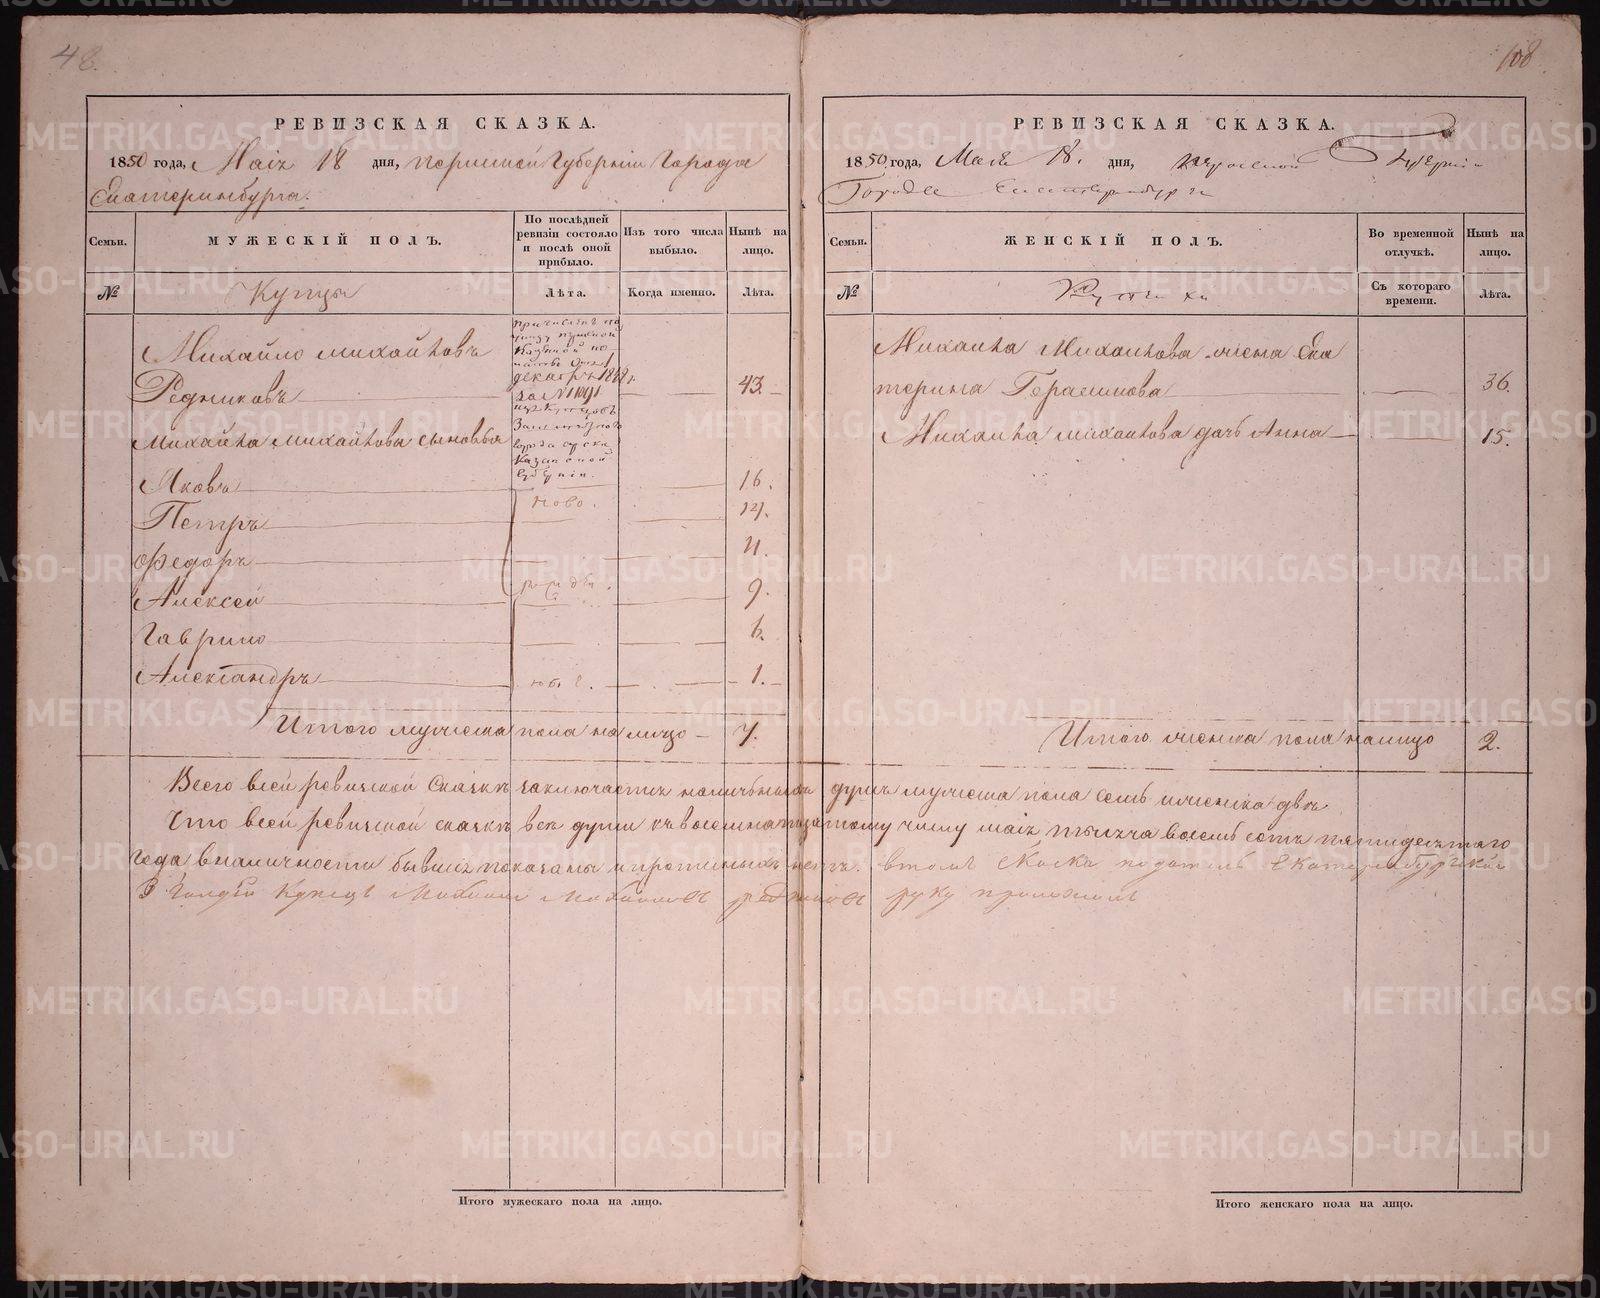 48.
РЕВИЗСКАЯ СКАЗКА.
1850 года, Маія 18 дня, Пермской Губерніи Города
Екатеринбурга.
Семьи.
МУЖЕСКІЙ ПОЛЪ.
По послѣдней ревизіи состояло и послѣ оной прибыло.
Изъ того числа выбыло.
Нынѣ на лицо.
№
Купцы
Лѣта.
Когда именно.
Лѣта.
Михайло Михайловъ
Редниковъ 43.
Михайла Михайлова сыновья
причисленъ по
казенной па-
декабря 1848 г.
за № 11091
изъ купцовъ
города
Казанской
губерніи.
Яковъ 16.
ново.
Петръ 14.
Федоръ 11.
Алексей 9.
Гаврило 6.
Александръ 1.
Итого мужеска пола на лицо 7.
108
РЕВИЗСКАЯ СКАЗКА.
1850 года, Маія 18. дня, Пермской Губерніи
Города Екатеринбурга
Семьи.
ЖЕНСКІЙ ПОЛЪ.
Во временной отлучкѣ.
Нынѣ на лицо.
№
Купчихи
Съ котораго времени.
Лѣта.
Михаила Михаилова жена Ека
терина Герасимова 36.
Михаила Михаилова дочь Анна 15.
Итого женска пола налицо 2.
Всего въсей ревизской сказкѣ заключается наличныхъ душъ мужеска пола семь и женска двѣ
Что въсей ревизской сказкѣ всѣ души къ восемнатцатому числу маія тысяча восемь сотъ пятидесятаго
года вналичности бывшія показаны и прописныхъ нетъ. втомъ скаска податель екатеринбургской
3 Гилдіи Купецъ Михаило Михаиловъ редниковъ руку приложилъ
Итого мужескаго пола на лицо.
Итого женскаго пола на лицо.
METRIKI.GASO-URAL.RU